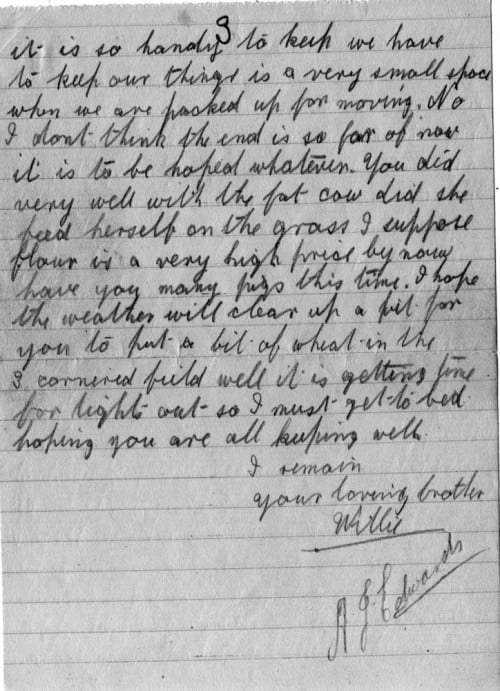 3
it is so handy to keep we have
to keep our things is a very small space
when we are packed up for moving. No
I dont think the end is so far of now
it is to be hoped whatever. You did
very well with the fat cow did she
feed herself on the grass I suppose
flour is a very high price by now
have you many pigs this time. I hope
the weather will clear up a bit for
you to put a bit of wheat in the
3 cornered field well it is getting time
for lights out so I must get to bed
hoping you are all keeping well.
I remain
your loving brother
Willie
A. J. Edwards